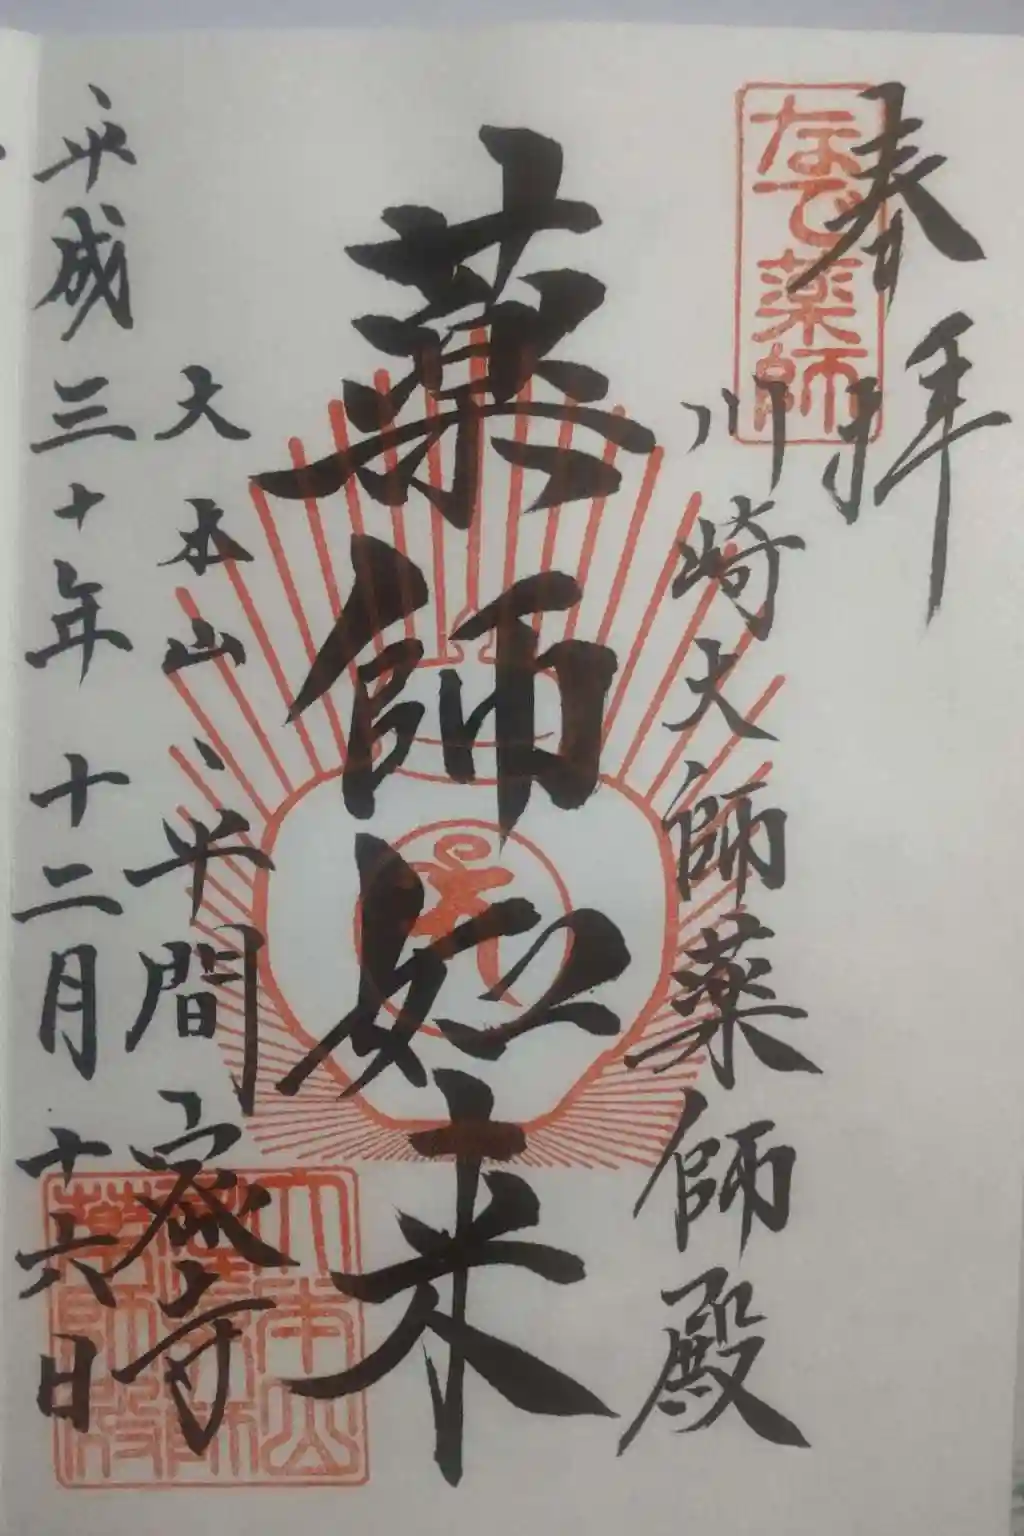 奉拝
なで薬師
川崎大師薬師殿
薬師如来
大本山 平間寺
平成三十年 十二月 十六日
大本山
薬師殿